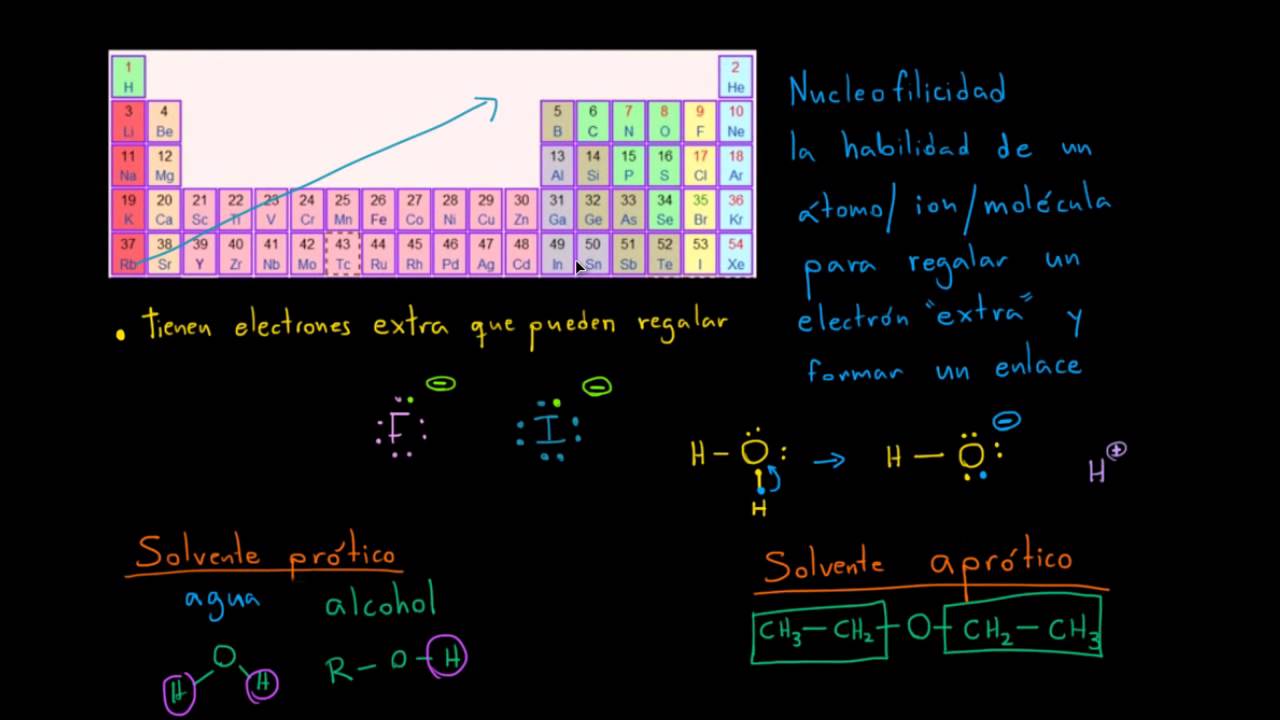 1 2
H He
3 4 5 6 7 8 9 10
Li Be B C N O F Ne
11 12 13 14 15 16 17 18
Na Mg Al Si P S Cl Ar
19 20 21 22 23 24 25 26 27 28 29 30 31 32 33 34 35 36
K Ca Sc Ti V Cr Mn Fe Co Ni Cu Zn Ga Ge As Se Br Kr
37 38 39 40 41 42 43 44 45 46 47 48 49 50 51 52 53 54
Rb Sr Y Zr Nb Mo Tc Ru Rh Pd Ag Cd In Sn Sb Te I Xe
Nucleofilicidad
la habilidad de un
átomo/ ion/molécula
para regalar un
electrón "extra" y
formar un enlace
• Tienen electrones extra que pueden regalar
F ⊖ I ⊖
H – O : → H — O : ⊖ H ⊕
H
Solvente prótico
agua alcohol
O
H H
R – O – H
Solvente aprótico
CH3 — CH2 – O – CH2 — CH3